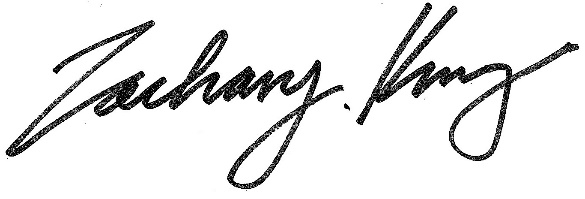 Zachary. King